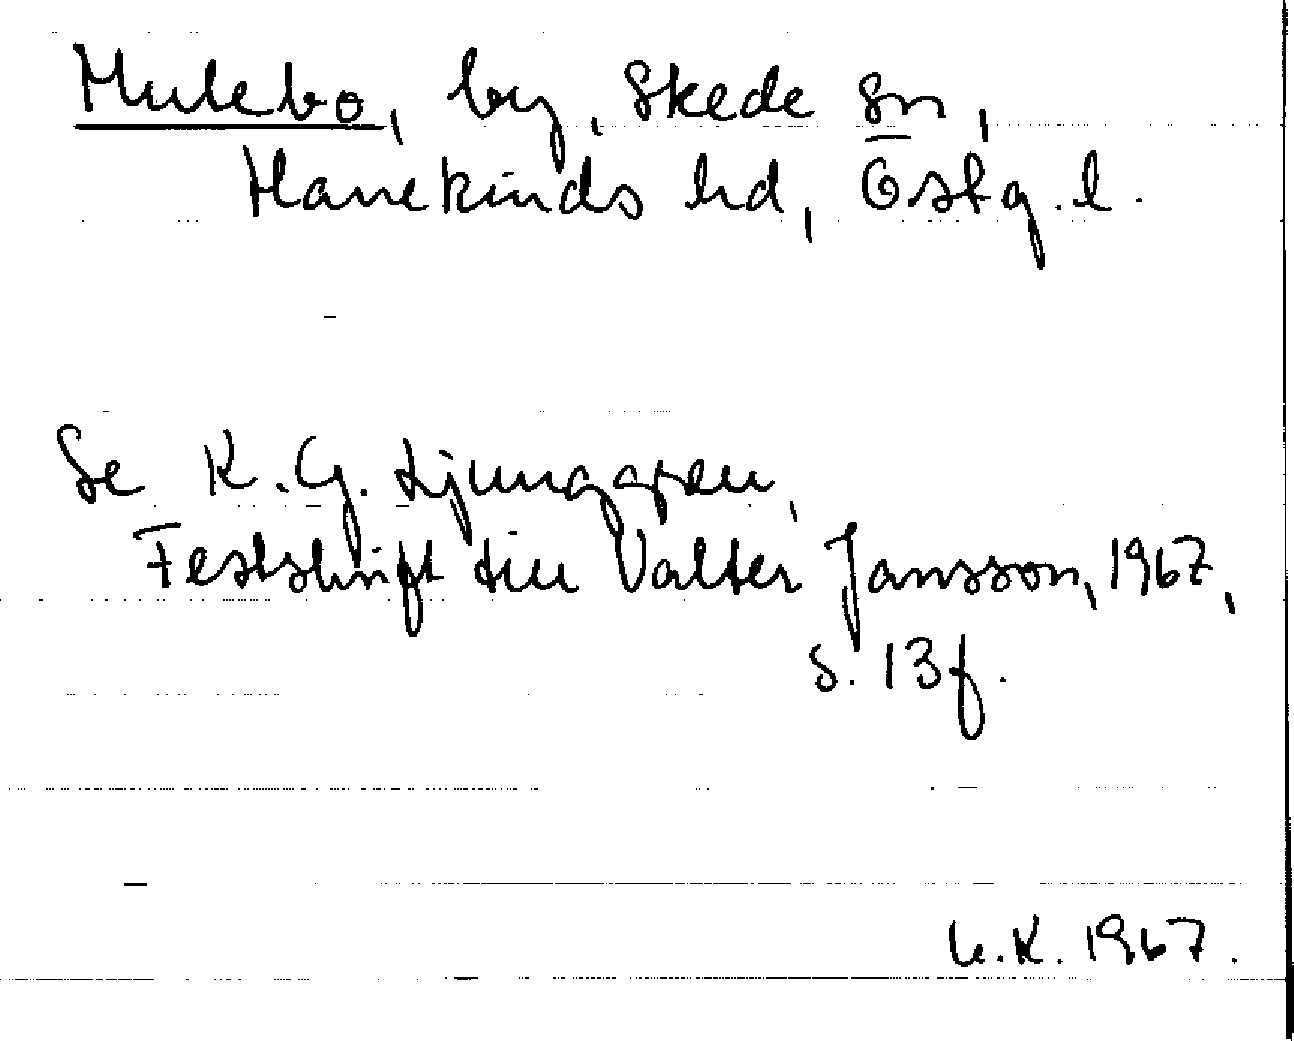 Hulebo, by, Skede sn,
Hanekinds hd, Östg. l.
Se K.G. Ljunggren,
Festskrift till Valter Jansson, 1967,
s. 13 f.
1967.